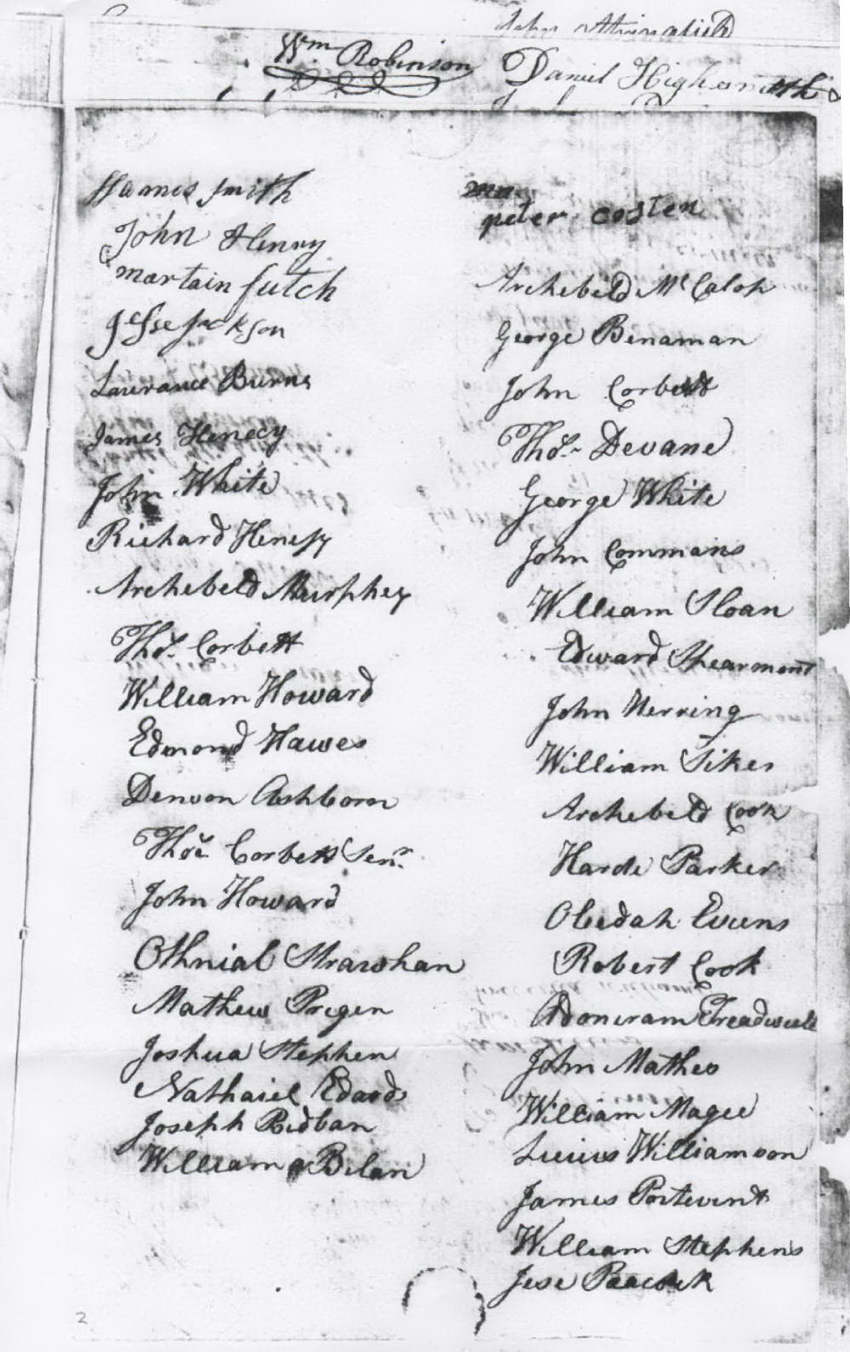 John
Wm Robinson
Daniel Highsmith
James Smith
John Henry
martain futch
Jesse Jackson
Laurance Burns
James Henecy
John White
Richard Henesy
Archebeld Murphey
Thos Corbett
William Howard
Edmond Hawes
Denvon Ashborn
Thos Corbett Senr
John Howard
Othnial Strawhan
Mathew Pregen
Joshua Stephen
Nathaiel Edards
Joseph Ridban
William Belan
peter costen
Archebeld McCalok
George Benaman
John Corbett
Thos Devane
George White
John Commans
William Sloan
Edward Spearmont
John Herring
William Sikes
Archebeld Cook
Harde Parker
Obedah Evens
Robert Cook
Adoneram Treadwell
John Mathes
William Magee
Lucius Williamson
James Portevent
William Stephens
Jese Peacock
2